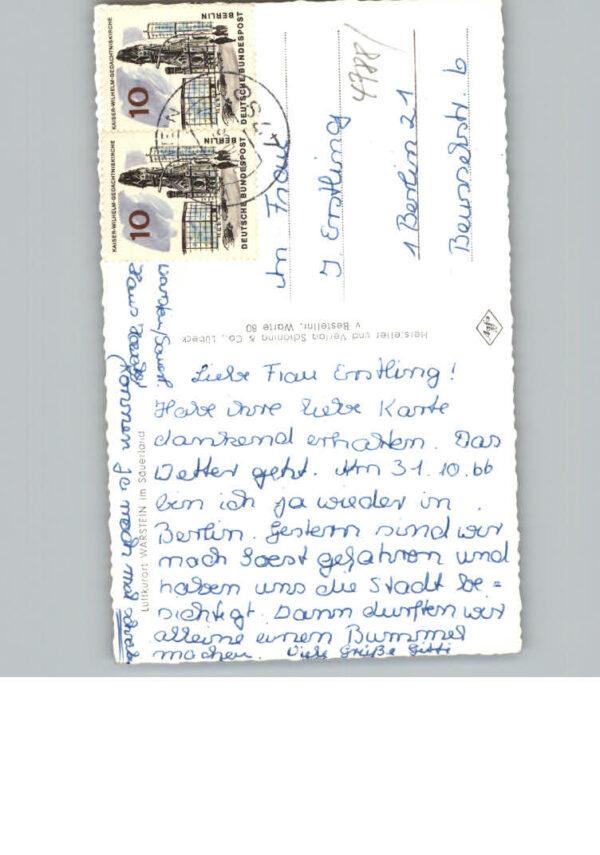 KAISER-WILHELM-GEDÄCHTNISKIRCHE
10
BERLIN
DEUTSCHE BUNDESPOST
KAISER-WILHELM-GEDÄCHTNISKIRCHE
10
BERLIN
DEUTSCHE BUNDESPOST
4788/
An Frau
J. Erstling
1 Berlin 21
Beusselstr. 6
Hersteller und Verlag Schöning & Co., Lübeck
v Bestellnr. Warte 80
Luftkurort WARSTEIN im Sauerland
Warstein/Sauerl.
Haus
Liebe Frau Erstling!
Habe ihre liebe Karte
dankend erhalten. Das
Wetter geht. Am 31.10.66
bin ich ja wieder in
Berlin. Gestern sind wir
nach Soest gefahren und
haben uns die Stadt be=
sichtigt. Dann durften wir
alleine einen Bummel
machen. Viele Grüße Gitti
(Können ja noch mal